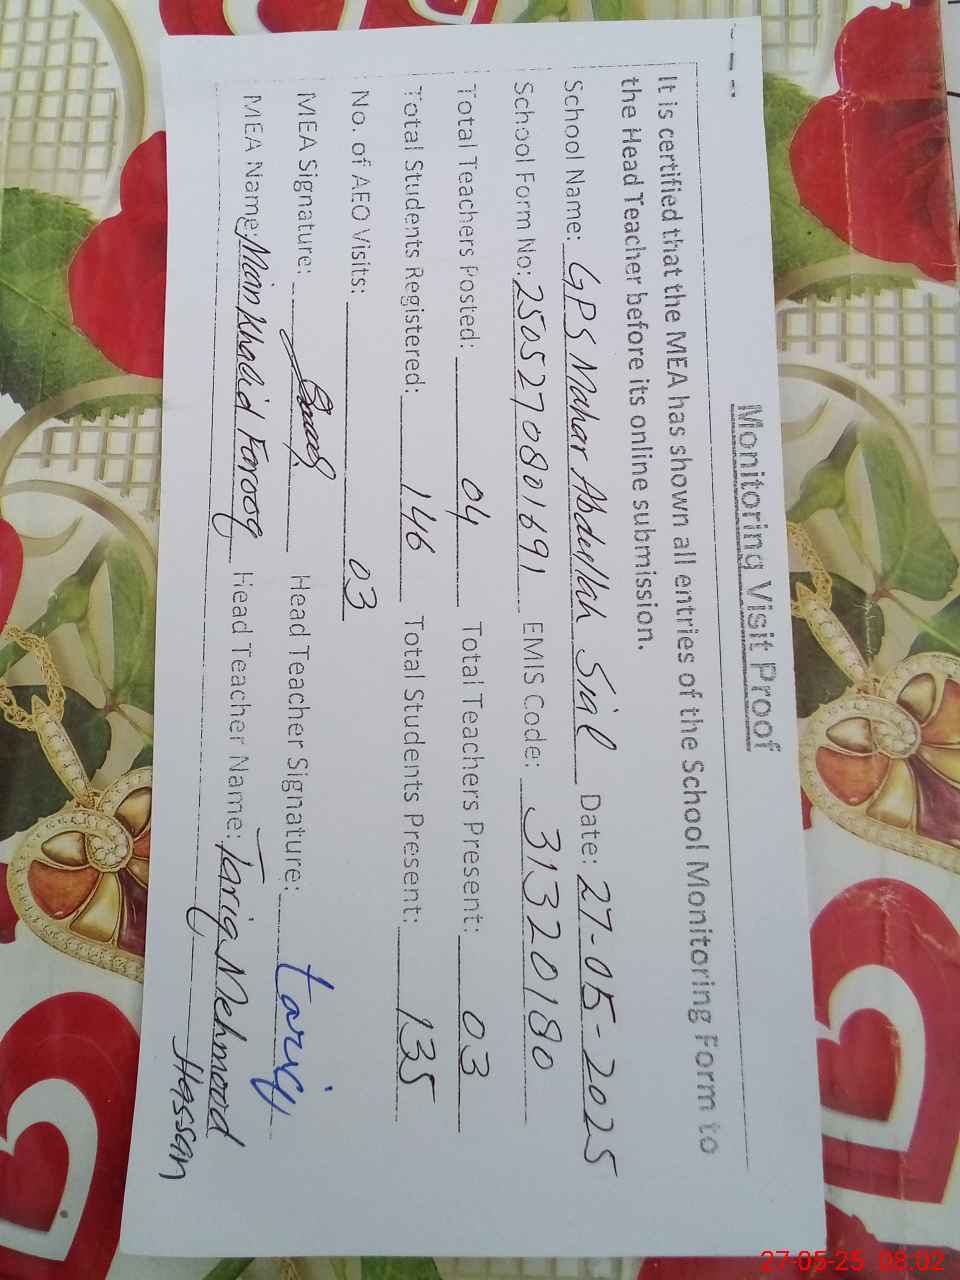 Monitoring Visit Proof
It is certified that the MEA has shown all entries of the School Monitoring Form to
the Head Teacher before its online submission.
School Name: GPS Mahar Abdullah Sial Date: 27-05-2025
School Form No: 2505270801691 EMIS Code: 31320180
Total Teachers Posted: 04 Total Teachers Present: 03
Total Students Registered: 146 Total Students Present: 135
No. of AEO Visits: 03
MEA Signature: Head Teacher Signature: tariq
MEA Name: Mian Khalid Farooq Head Teacher Name: Tariq Mehmood
Hassan
27-05-25 08:02